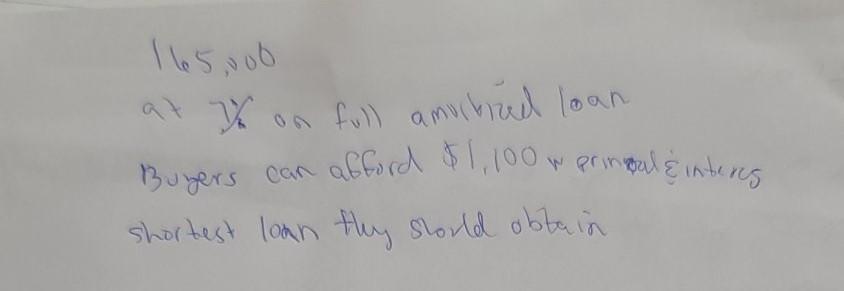 165,000
at 7% on full amorbized loan
Buyers can afford $1,100 w prinpal & interes
shortest loan thy shorld obtain